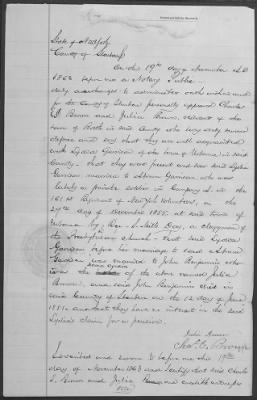 State of New York
County of Steuben
On this 19th day of November A.D.
1863 before me a Notary Public
duly authorized to administer oaths within and
for the County of Steuben personally appeared Charles
E. Brown and Julia Brown, resident of the
town of Bath in said County who being duly sworn
depose and say that they are well acquainted
with Lydia Garrison of the town of Urbana, in said
County - that they were present and saw said Lydia
Garrison married to Abram Garrison who was
lately a private soldier in Company in the
161st Regiment of New York Volunteers, on the
29th day of November 1855, at said town of
Urbana by Rev. a clergyman of
the Presbyterian Church - that said Lydia
Garrison before her marriage to said Abram
Garrison was married to John Benjamin who
was the of the above named Julia
Brown, and said John Benjamin died in
said County of Steuben on the 12 day of June
1851 and that they have no interest in the said
Lydia's claim for a pension.
Julia Brown
Chas. E. Brown
Subscribed and sworn to before me this 19th
day of November 1863 and I certify that said Charles
E. Brown and Julia Brown are credible witnesses